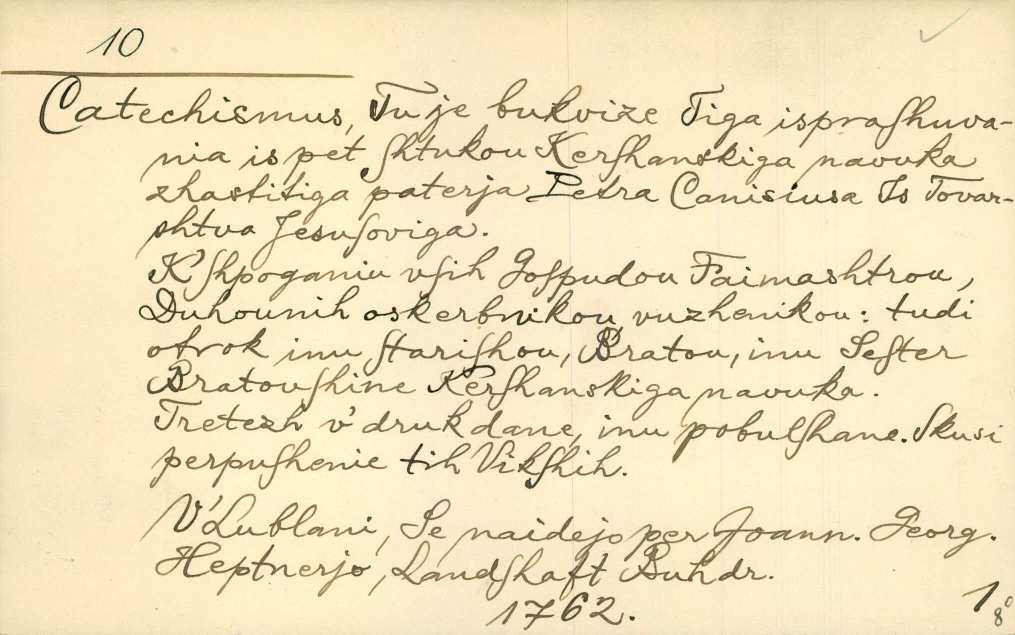 10
Catechismus, Tu je bukvize Tiga isprashuva-
nia is pet ſhtukou Kerſhanskiga navuka
zhastitiga paterja Petra Canisiusa Is Tovar-
shtva Jesuſoviga.
K'ſhpoganiu vſih Goſpudou Faimashtrou,
Duhounih oskerbnikou vuzhenikou: tudi
otrok inu ſtariſhou, Bratou, inu Seſter
Bratouſhine Kerſhanskiga navuka.
Tretezh v'druk dane, inu pobulſhane. Skusi
perpuſhenie tih Vikſhih.
V'Lublani, Se naidejo per Joann. Georg.
Heptnerjo, Landſhaft Buhdr.
1762.
1
8°